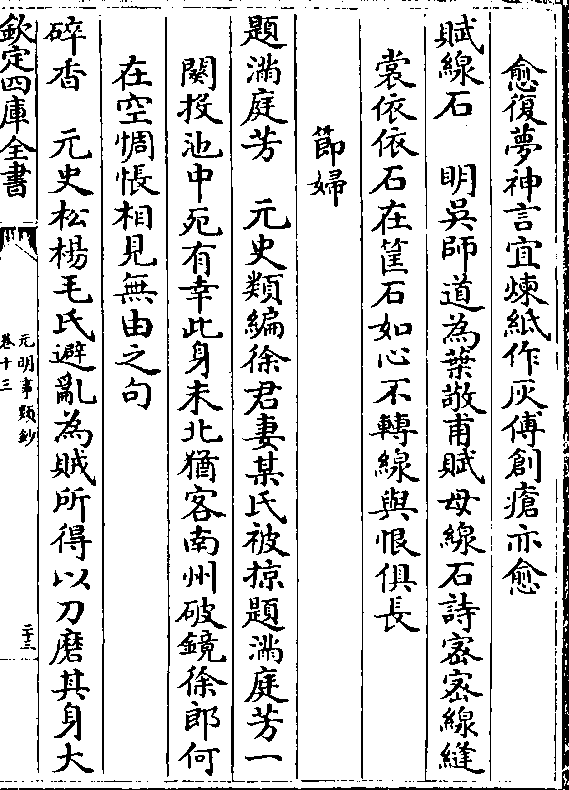 愈復夢神言宜煉紙作灰傅創瘡亦愈
賦線石　明吳師道為葉敬甫賦母線石詩宻宻線縫
裳依依石在筐石如心不轉線與恨俱長
節婦
題滿庭芳　元史類編徐君妻某氏被掠題滿庭芳一
闋投池中死有幸此身未北猶客南州破鏡徐郎何
在空惆悵相見無由之句
碎香　元史松楊毛氏避亂為賊所得以刀磨其身大
欽定四庫全書
元明事類鈔
卷十三
二十三